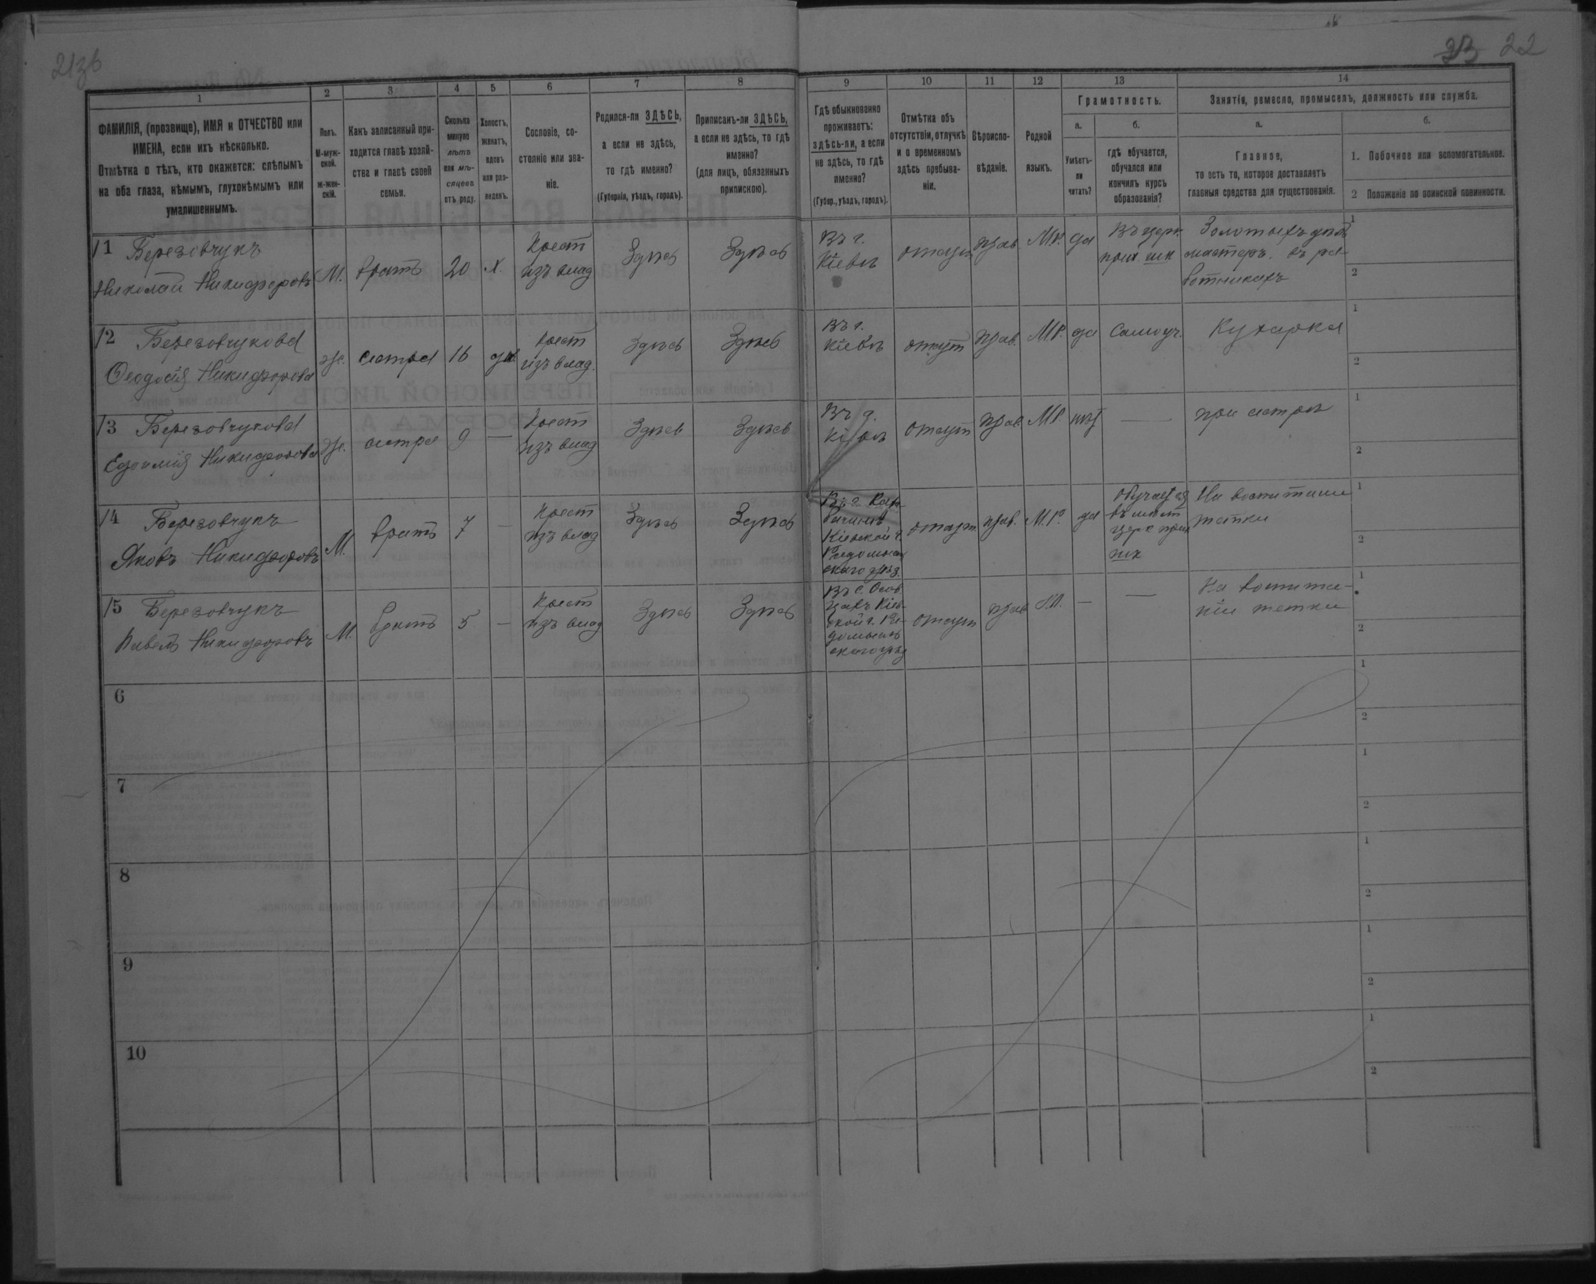 2136
33 22
1 2 3 4 5 6 7 8 9 10 11 12 13 14
ФАМИЛІЯ, (прозвище), ИМЯ и ОТЧЕСТВО или
ИМЕНА, если ихъ нѣсколько.
Отмѣтка о тѣхъ, кто окажется: слѣпымъ
на оба глаза, нѣмымъ, глухонѣмымъ или
умалишеннымъ.
Полъ.
М-муж-
ской.
ж-жен-
скій.
Какъ записанный при-
ходится главѣ хозяй-
ства и главѣ своей
семьи.
Сколько
минуло
лѣтъ
или мѣ-
сяцевъ
отъ роду.
Холостъ,
женатъ,
вдовъ
или раз-
веденъ.
Сословіе, со-
стояніе или зва-
ніе.
Родился-ли ЗДѢСЬ,
а если не здѣсь,
то гдѣ именно?
(Губернія, уѣздъ, городъ).
Приписанъ-ли ЗДѢСЬ,
а если не здѣсь, то гдѣ
именно?
(для лицъ, обязанныхъ
припискою).
Гдѣ обыкновенно
проживаетъ:
здѣсь-ли, а если
не здѣсь, то гдѣ
именно?
(Губер., уѣздъ, городъ).
Отмѣтка объ
отсутствіи, отлучкѣ
и о временномъ
здѣсь пребыва-
ніи.
Вѣроиспо-
вѣданіе.
Родной
языкъ.
Грамотность.
а.
Умѣетъ-
ли
читать?
б.
гдѣ обучается,
обучался или
кончилъ курсъ
образованія?
Занятія, ремесло, промыселъ, должность или служба.
а.
Главное,
то есть то, которое доставляетъ
главныя средства для существованія.
б.
1. Побочное или вспомогательное.
2 Положеніе по воинской повинности.
1 Березовчукъ
Николай Никифоровъ
М. братъ 20 х.
Крест
изъ влад
Здѣсь Здѣсь
Въ г.
Кіевѣ
отсут прав. М.Р. да
Въ церк
прих шк
Золотыхъ дѣлъ
мастеръ. въ ра-
ботникахъ
1
2
2 Березовчукова
Феодосія Никифорова
Ж. сестра 16 дѣ
Крест
изъ влад.
Здѣсь Здѣсь
Въ г.
Кіевѣ
отсут прав. М.Р. да Самоуч. Кухарка
1
2
3 Березовчукова
Никифорова
Ж. сестра 9 —
Крест
изъ влад
Здѣсь Здѣсь
Въ г.
Кіевѣ
отсут прав. М.Р. нѣт — при сестрѣ
1
2
4 Березовчукъ
Яковъ Никифоровъ
М. братъ 7 —
Крест
изъ влад
Здѣсь Здѣсь
Кіевской г.
отсут прав. М.Р. да
обучается
церк прих
шк
На воспитаніи
тетки
1
2
5 Березовчукъ
Павелъ Никифоровъ
М. братъ 5 —
Крест
изъ влад
Здѣсь Здѣсь
отсут прав М. — —
На воспита-
ніи тетки
1
2
6
1
2
7
1
2
8
1
2
9
1
2
10
1
2